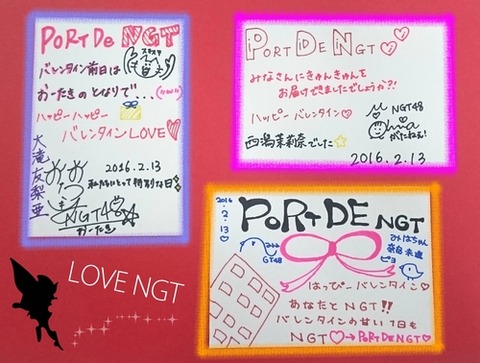 PORT De NGT
バレンタイン前日は
おーたきのとなりで・・・
ハッピーハッピー
バレンタインLOVE♡
大滝友梨亜
2016.2.13
私たちにとって特別な日
NGT48☆
おーたき
PORT DE NGT♡
みなさんにきゅんきゅんを
お届けできましたでしょうか?!
ハッピーバレンタイン♡
NGT48
西潟茉莉奈でした☆
がたねぇ!
2016.2.13
2016.2.13♡
PORT DE NGT
みはちゃん
奈良未遥
ピヨ
はっぴーバレンタイン♡
あなたとNGT!!
バレンタインの甘い1日も
NGT♡→PORT DE NGT♡
LOVE NGT